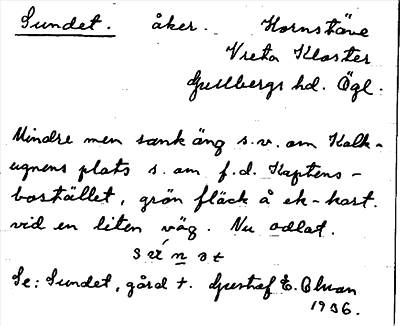 Sundet. åker. Kornstäve
Vreta Kloster
Gullbergs hd. Ögl.
Mindre men sank äng s.v. om Kalk-
ugnens plats s. om f.d. Kaptens-
bostället, grön fläck å ek-kart.
vid en liten väg. Nu odlat.
Se: Sundet, gård +. Gustaf E. Olson
1936.